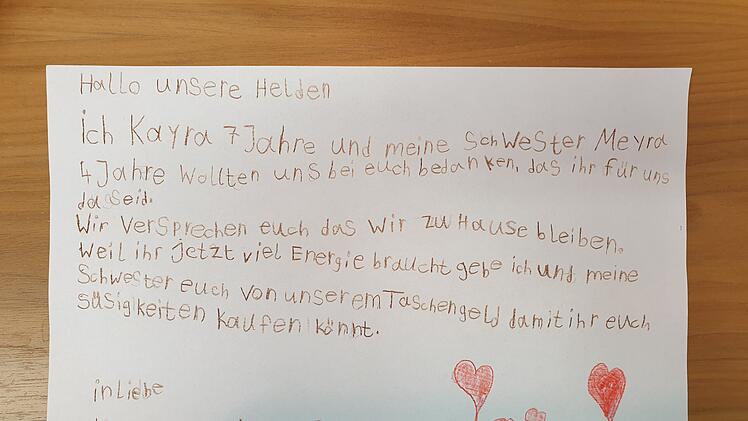 Hallo unsere Helden
ich Kayra 7 Jahre und meine Schwester Meyra
4 Jahre Wollten uns bei euch bedanken, das ihr für uns
da seid.
Wir Versprechen euch das wir zu Hause bleiben.
Weil ihr jetzt viel Energie braucht gebe ich und meine
Schwester euch von unserem Taschengeld damit ihr euch
süsigkeiten kaufen könnt.
in Liebe